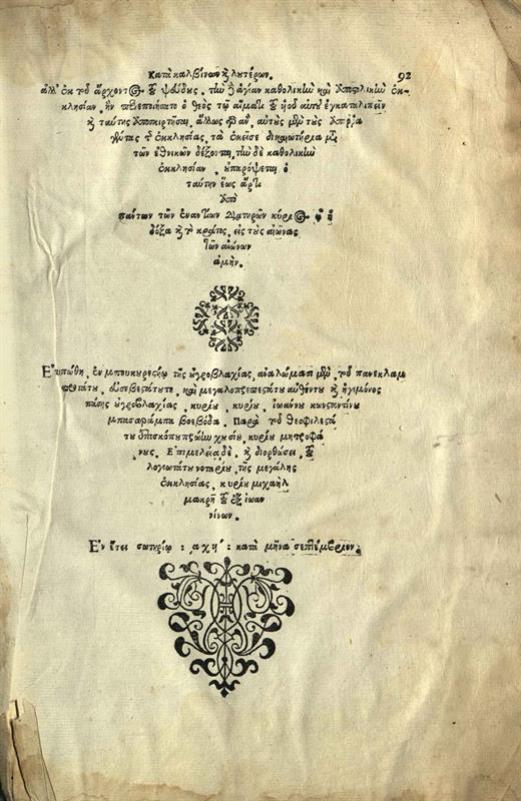 Κατὰ καλβίνων ϗ λυτέρων. 92
ἀλλ' ἐκ τοῦ ἄρχοντος τοῦ ψεύδους, τὴν ἁγίαν καθολικὴν καὶ ἀποστολικὴν ἐκ-
κλησίαν, ἣν περιεποιήσατο ὁ θεὸς τῷ αἵματι τοῦ υἱοῦ αὐτοῦ ἐγκαταλιπεῖν
ϗ ταύτης ἀποσκιρτῆσαι, αὐτοὺς μὲν τοὺς
τῆς ἐκκλησίας, τὰ ἐκεῖσε δικαιωτήρια μετὰ
τῶν ἐθνικῶν δέξονται, τὴν δὲ καθολικὴν
ἐκκλησίαν, ὁ
ταύτην ἕως ἄρτι
ἀπὸ
πάντων τῶν ἐναντίων κύριος, ᾧ ἡ
δόξα ϗ τὸ κράτος, εἰς τοὺς αἰῶνας
τῶν αἰώνων
ἀμήν.
Ἐτυπώθη, ἐν μπουκυρεστίῳ τῆς οὑγροβλαχίας, ἀναλώμασι μὲν, τοῦ πανεκλαμ
προτάτου, εὐσεβεστάτου τε, καὶ μεγαλοπρεπεστάτου αὐθέντου ϗ ἡγεμόνος
πάσης οὑγροβλαχίας, κυρίου, κυρίου, ἰωάννου κωνσταντίνου
μπασαράμπα βοεβόδα. Παρὰ τοῦ θεοφιλεστά
του ἐπισκόπου πρώην χουσίου, κυρίου μητροφά
νους. Ἐπιμελείᾳ δὲ, ϗ διορθώσει, τοῦ
λογιωτάτου νοταρίου, τῆς μεγάλης
ἐκκλησίας, κυρίου μιχαὴλ
μακρῆ τοῦ ἐξ ἰωαν
νίνων.
Ἐν ἔτει σωτηρίῳ : αχϟ´ : κατὰ μῆνα σεπτέμβριον.